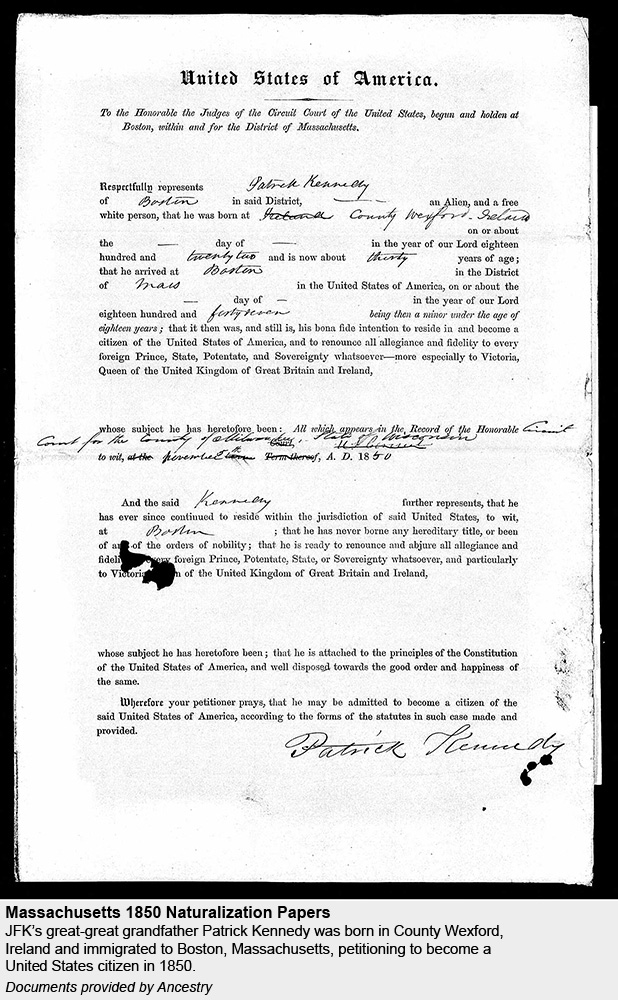 United States of America.
To the Honorable the Judges of the Circuit Court of the United States, begun and holden at
Boston, within and for the District of Massachusetts.
Respectfully represents Patrick Kennedy
of Boston in said District, an Alien, and a free
white person, that he was born at Ireland County Wexford - Ireland
on or about
the — day of — in the year of our Lord eighteen
hundred and twenty two and is now about thirty years of age;
that he arrived at Boston in the District
of Mass in the United States of America, on or about the
— day of — in the year of our Lord
eighteen hundred and forty seven being then a minor under the age of
eighteen years; that it then was, and still is, his bona fide intention to reside in and become a
citizen of the United States of America, and to renounce all allegiance and fidelity to every
foreign Prince, State, Potentate, and Sovereignty whatsoever—more especially to Victoria,
Queen of the United Kingdom of Great Britain and Ireland,
whose subject he has heretofore been: All which appears in the Record of the Honorable Circuit
Court for the County of Milwaukee, State of Wisconsin
Court,
to wit, at the November Term thereof, A. D. 1850
And the said Kennedy further represents, that he
has ever since continued to reside within the jurisdiction of said United States, to wit,
at Boston ; that he has never borne any hereditary title, or been
of any of the orders of nobility; that he is ready to renounce and abjure all allegiance and
foreign Prince, Potentate, State, or Sovereignty whatsoever, and particularly
to of the United Kingdom of Great Britain and Ireland,
whose subject he has heretofore been; that he is attached to the principles of the Constitution
of the United States of America, and well disposed towards the good order and happiness of
the same.
Wherefore your petitioner prays, that he may be admitted to become a citizen of the
said United States of America, according to the forms of the statutes in such case made and
provided.
Patrick Kennedy
Massachusetts 1850 Naturalization Papers
JFK's great-great grandfather Patrick Kennedy was born in County Wexford,
Ireland and immigrated to Boston, Massachusetts, petitioning to become a
United States citizen in 1850.
Documents provided by Ancestry